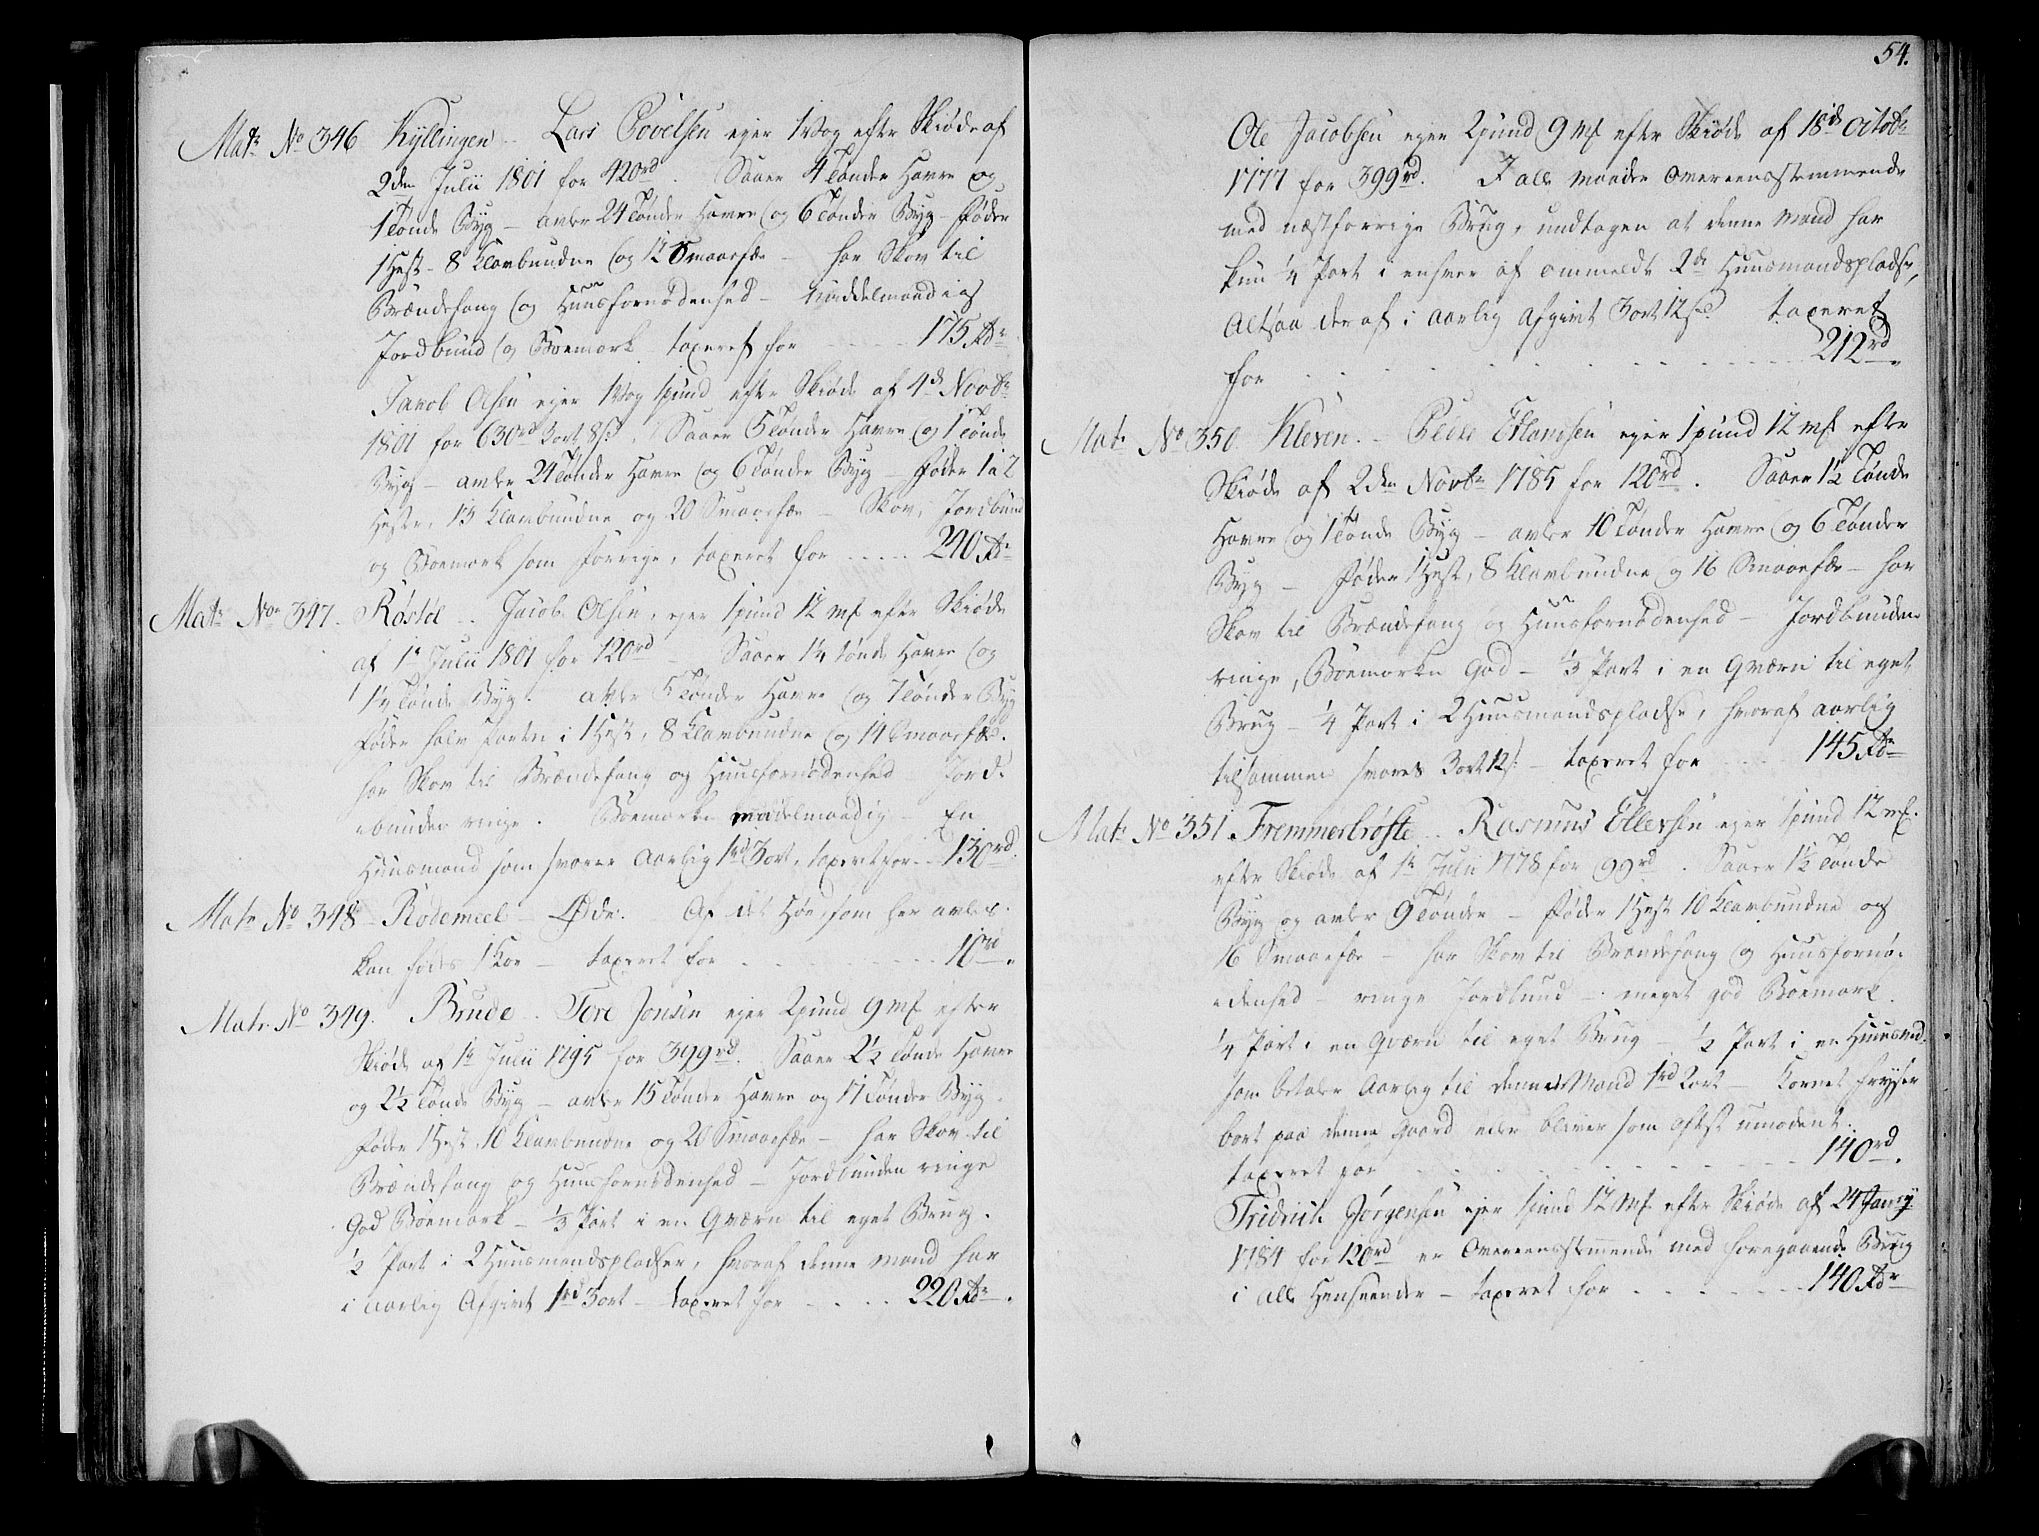 Matr No 346 Kyllingen .. Lars Povelsen ejer 1 Vog efter Skiøde af
2den Julii 1801 for 420rd. Saaer 4 Tønder Havre og
1 Tønde Byg – avler 24 Tønder Havre og 6 Tønder Byg – føder
1 Hest – 8 Klavbundne og 12 Smaaefæ – har Skov til
Brændefang og Huusfornødenhed – Middelmaadig
Jordbund og Bøemark taxeret for ..... 175 Rdr
Jacob Olsen ejer 1 Vog 1 pund efter Skiøde af 4de Novbr
1801 for 630rd 3 ort 8s. Saaer 5 Tønder Havre og 1 Tønde
Byg – avler 24 Tønder Havre og 6 Tønder Byg – føder 1 a 2
Heste, 13 Klavbundne og 20 Smaaefæ – Skov, Jordbund
og Bøemark som forrige, taxeret for ..... 240 Rdr
Matr No 347. Røstøl .. Jacob Olsen, ejer 1 pund 12 mk efter Skiøde
af 1te Julii 1801 for 120rd – Saaer 1¼ Tønde Havre og
1¼ Tønde Byg. avler 5 Tønder Havre og 7 Tønder Byg
føder halv Parten i 1 Hest, 8 Klavbundne og 14 Smaaefæ.
har Skov til Brændefang og Huusfornødenhed – Jord-
bunden ringe. Bøemarken middelmaadig – En
Huusmand som svarer aarlig 1rd 3 ort, taxeret for .. 130rd.
Matr No 348 – Rødemeel – Øde. Af det Høe, som her avles
kan fødes 1 Koe – taxeret for ......... 10rd.
Matr. No 349. Brude .. Tore Jonsen ejer 2 pund 9 mk efter
Skiøde af 1te Julii 1795 for 399rd. Saaer 2½ Tønde Havre
og 2½ Tønde Byg – avler 15 Tønder Havre og 11 Tønder Byg.
føder 1 Hest, 10 Klavbundne og 20 Smaaefæ – har Skov til
Brændefang og Huusfornødenhed – Jordbunden ringe
God Bøemark – ⅓ Part i en Qværn til eget Brug.
½ Part i 2 Huusmandspladser, hvoraf denne Mand har
i aarlig Afgivt 1rd 3 ort – taxeret for ..... 220 Rdr.
54.
Ole Jacobsen ejer 2 pund 9 mk efter Skiøde af 18de Octobr
1777 for 399rd. I alle Maader overeensstemmende
med næstforrige Brug, undtagen at denne Mand har
kun ¼ Part i enhver af ommeldte 2de Huusmandspladse,
Altsaa deraf i aarlig Afgivt 3 ort 12 s – taxeret
for ......... 212rd.
Matr No 350. Kleven .. Peder Erlandsen ejer 1 pund 12 mk efter
Skiøde af 2den Novbr 1785 for 120rd. Saaer 1½ Tønde
Havre og 1 Tønde Byg – avler 10 Tønder Havre og 6 Tønder
Byg – føder 1 Hest, 8 Klavbundne og 16 Smaaefæ – har
Skov til Brændefang og Huusfornødenhed – Jordbunden
ringe, Bøemarken god – ⅓ Part i en Qværn til eget
Brug – ¼ Part i 2 Huusmandspladse, hvoraf aarlig
tilsammen svares 3 ort 12 s. – taxeret for .... 145 Rdr
Matr No 351. Fremmerbrøste .. Rasmus Ellevsen ejer 1 pund 12 mk.
efter Skiøde af 1te Julii 1778 for 99rd. Saaer 1½ Tønde
Byg og avler 9 Tønder – føder 1 Hest 10 Klavbundne og
16 Smaaefæ – har Skov til Brændefang og Huusfornø-
denhed – ringe Jordbund – meget god Bøemark.
¼ Part i en Qværn til eget Brug – ½ Part i en Huusmd.
som betaler aarlig til denne Mand 1rd 2 ort – Kornet fryser
bort paa denne Gaard eller bliver som oftest umodent.
taxeret for ......... 140rd.
Fridrich Jørgensen ejer 1 pund 12 mk efter Skiøde af 24 Janrij
1784 for 120rd er overeensstemmende med foregaaende Brug
i alle Henseender – taxeret for ........ 140 Rdr